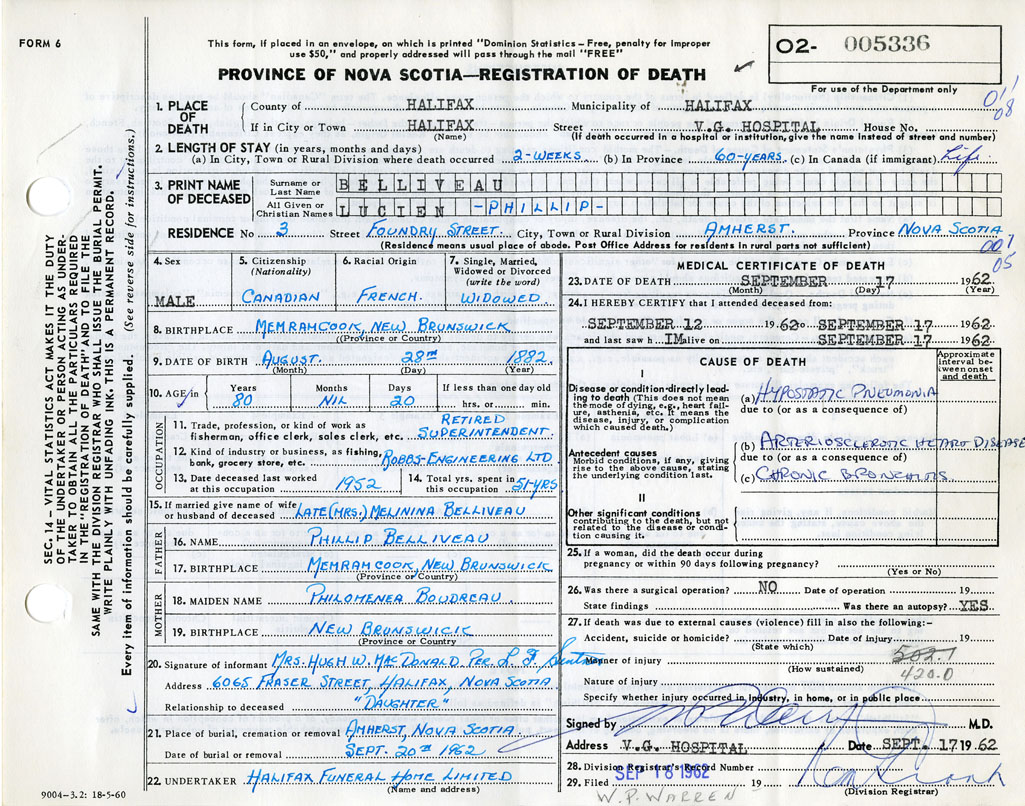 FORM 6
This form, if placed in an envelope, on which is printed "Dominion Statistics – Free, penalty for improper
use $50," and properly addressed will pass through the mail "FREE"
PROVINCE OF NOVA SCOTIA—REGISTRATION OF DEATH
02- 005336
For use of the Department only
01'
08
1. PLACE OF DEATH
County of HALIFAX Municipality of HALIFAX
If in City or Town HALIFAX Street V.G. HOSPITAL House No.
(Name) (If death occurred in a hospital or institution, give the name instead of street and number)
2. LENGTH OF STAY (in years, months and days)
(a) In City, Town or Rural Division where death occurred 2-WEEKS (b) In Province 60-YEARS. (c) In Canada (if immigrant) Life.
3. PRINT NAME OF DECEASED
Surname or Last Name BELLIVEAU
All Given or Christian Names LUCIEN -PHILLIP-
RESIDENCE No 3 Street FOUNDRY STREET. City, Town or Rural Division AMHERST. Province NOVA SCOTIA
(Residence means usual place of abode. Post Office Address for residents in rural parts not sufficient)
001
05
4. Sex MALE
5. Citizenship (Nationality) CANADIAN
6. Racial Origin FRENCH.
7. Single, Married, Widowed or Divorced (write the word) WIDOWED
8. BIRTHPLACE MEMRAMCOOK, NEW BRUNSWICK
(Province or Country)
9. DATE OF BIRTH AUGUST. 28TH 1882
(Month) (Day) (Year)
10. AGE in
Years 80 Months NIL Days 20 If less than one day old hrs. or min.
OCCUPATION
11. Trade, profession, or kind of work as
fisherman, office clerk, sales clerk, etc. RETIRED SUPERINTENDENT.
12. Kind of industry or business, as fishing,
bank, grocery store, etc. ROBBS-ENGINEERING LTD
13. Date deceased last worked at this occupation 1952
14. Total yrs. spent in this occupation 51-YRS
15. If married give name of wife
or husband of deceased LATE (MRS.) MELININA BELLIVEAU
FATHER
16. NAME PHILLIP BELLIVEAU
17. BIRTHPLACE MEMRAMCOOK, NEW BRUNSWICK
(Province or Country)
MOTHER
18. MAIDEN NAME PHILOMENEA BOUDREAU.
19. BIRTHPLACE NEW BRUNSWICK
(Province or Country
20. Signature of informant MRS. HUGH W. MACDONALD. PER. L. F.
Address 6065 FRASER STREET, HALIFAX, NOVA SCOTIA
Relationship to deceased "DAUGHTER"
21. Place of burial, cremation or removal AMHERST, NOVA SCOTIA
Date of burial or removal SEPT. 20TH 1962
22. UNDERTAKER HALIFAX FUNERAL HOME LIMITED
(Name and address)
MEDICAL CERTIFICATE OF DEATH
23. DATE OF DEATH SEPTEMBER 17 1962
(Month) (Day) (Year)
24. I HEREBY CERTIFY that I attended deceased from:
SEPTEMBER 12 1962 to SEPTEMBER 17 1962
and last saw h IM alive on SEPTEMBER 17 1962
CAUSE OF DEATH
Approximate interval between onset and death
I
Disease or condition directly leading to death (This does not mean
the mode of dying, e.g., heart failure, asthenia, etc. It means the
disease, injury, or complication
which caused death).
(a) HYPOSTATIC PNEUMONIA
due to (or as a consequence of)
Antecedent causes
Morbid conditions, if any, giving
rise to the above cause, stating
the underlying condition last.
(b) ARTERIOSCLEROTIC HEART DISEASE
due to (or as a consequence of)
(c) CHRONIC BRONCHITIS.
II
Other significant conditions
contributing to the death, but not
related to the disease or condition causing it.
25. If a woman, did the death occur during
pregnancy or within 90 days following pregnancy?
(Yes or No)
26. Was there a surgical operation? NO Date of operation 19
State findings Was there an autopsy? YES
27. If death was due to external causes (violence) fill in also the following:–
Accident, suicide or homicide? Date of injury 19
(State which)
502.1
Manner of injury
(How sustained)
420.0
Nature of injury
Specify whether injury occurred in Industry, in home, or in public place
Signed by M.D.
Address V.G. HOSPITAL Date SEPT. 17 1962
28. Division Registrar's Record Number
29. Filed SEP 18 1962 19
(Division Registrar)
W. P. WARREN
9004–3.2: 18-5-60
SEC. 14 – VITAL STATISTICS ACT MAKES IT THE DUTY
OF THE UNDERTAKER OR PERSON ACTING AS UNDERTAKER TO OBTAIN ALL THE PARTICULARS REQUIRED
IN THE "REGISTRATION OF DEATH" AND TO FILE THE
SAME WITH THE DIVISION REGISTRAR WHO SHALL ISSUE THE BURIAL PERMIT.
WRITE PLAINLY WITH UNFADING INK. THIS IS A PERMANENT RECORD.
Every item of information should be carefully supplied. (See reverse side for instructions.)